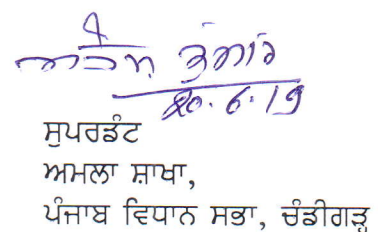 ਕੁਮਾਰ
20.6.19
ਸੁਪਰਡੰਟ
ਅਮਲਾ ਸ਼ਾਖਾ,
ਪੰਜਾਬ ਵਿਧਾਨ ਸਭਾ, ਚੰਡੀਗੜ੍ਹ